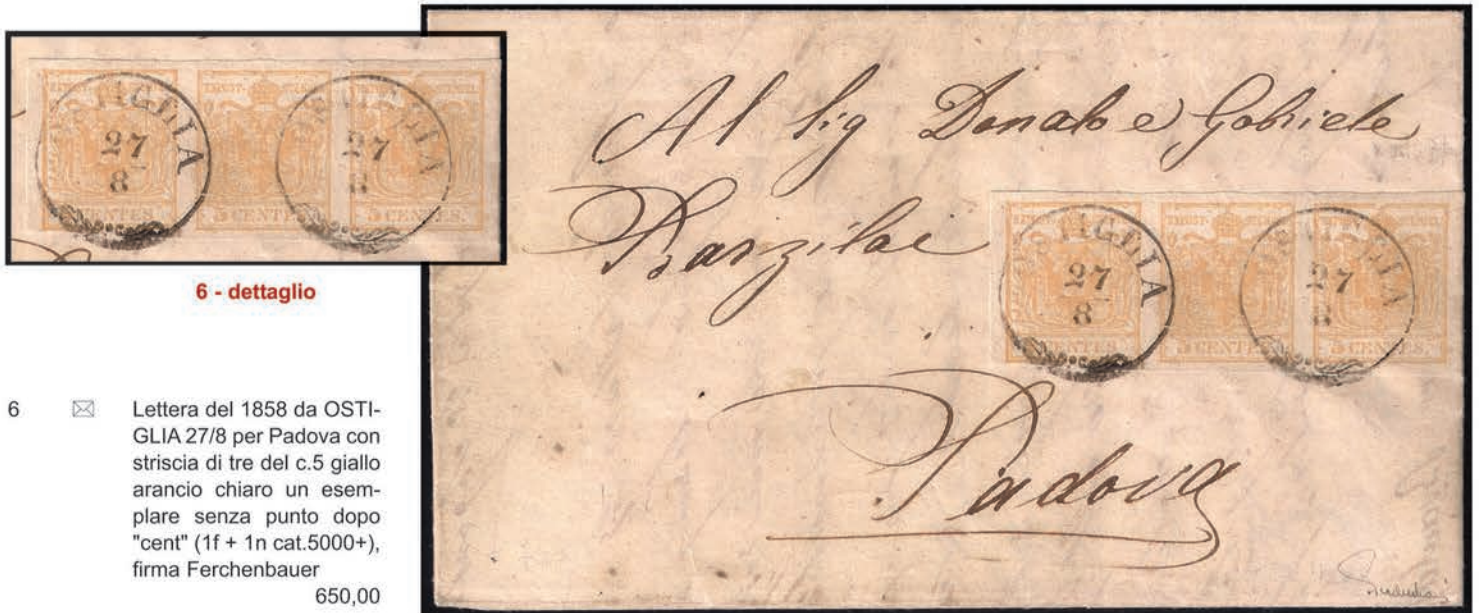 OSTIGLIA
27
8
5 CENTES.
27
8
5 CENTES.
6 - dettaglio
6 Lettera del 1858 da OSTI-
GLIA 27/8 per Padova con
striscia di tre del c.5 giallo
arancio chiaro un esem-
plare senza punto dopo
"cent" (1f + 1n cat.5000+),
firma Ferchenbauer
650,00
Al Sig Donato e Gabriele
Barzilai
Padova
OSTIGLIA
27
8
27
8
5 CENTES.